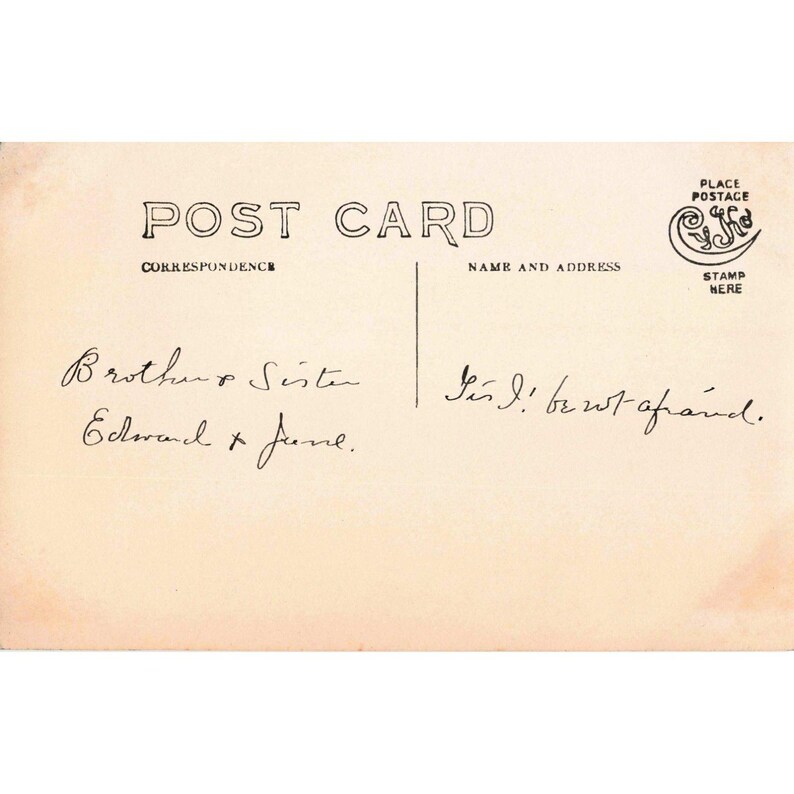 POST CARD
CORRESPONDENCE
NAME AND ADDRESS
PLACE
POSTAGE
CyKo
STAMP
HERE
Brother & Sister
Edward & June.
Tis I! be not afraid.